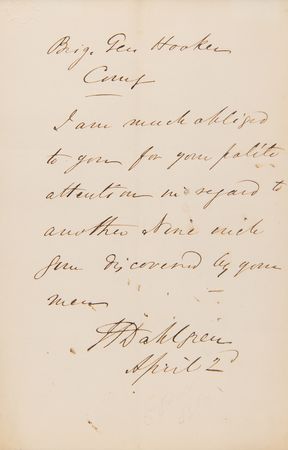 Brig. Gen Hooker
Comg
I am much obliged
to you for your polite
attention in regard to
another Nine inch
gun discovered by your
men
J A Dahlgren
April 2d